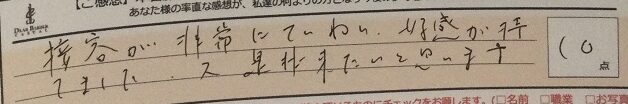 【ご感想】
あなた様の率直な感想が、私達の何よりの力と
DEAR BARBER
接客が非常にていねい、好感が持
てました。又是非来たいと思います
10点
にチェックをお願します。(□名前 □職業 □お写真